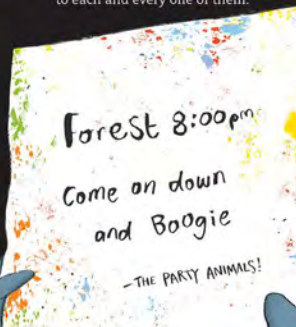 to each and every one of them.
Forest 8:00pm
Come on down
and Boogie
-THE PARTY ANIMALS!